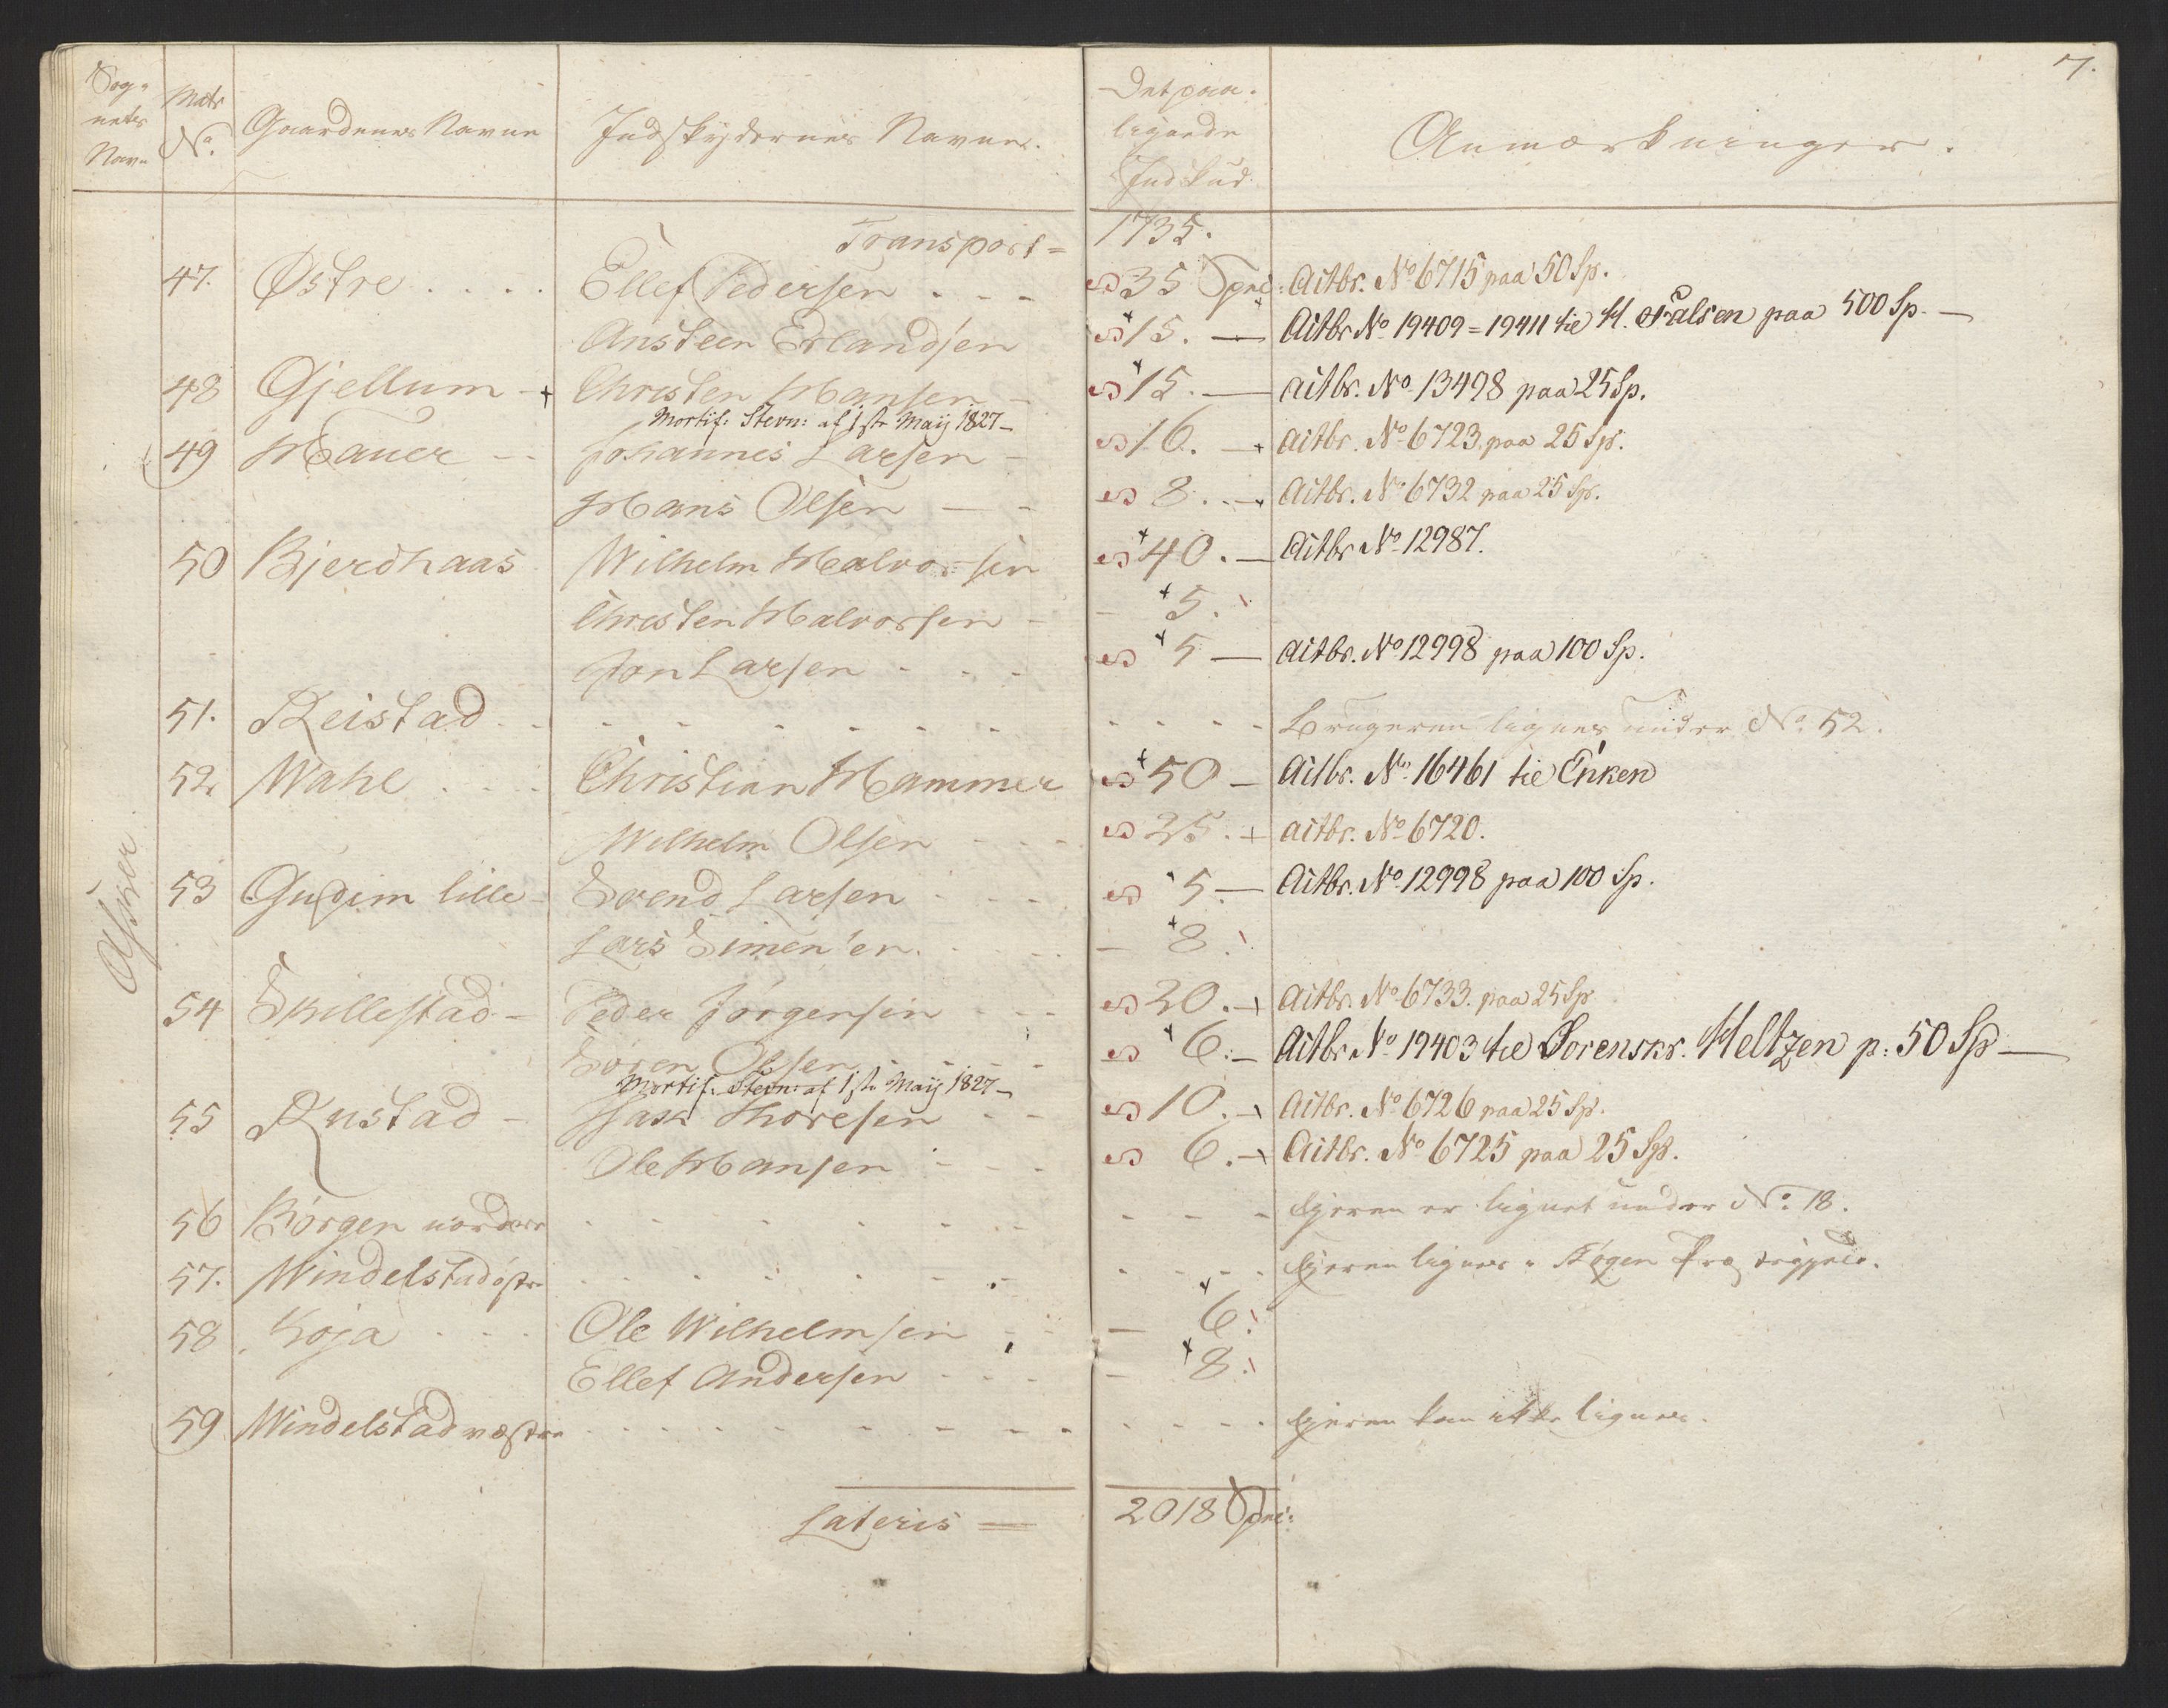 7.
Sog-
netes
Navn
Matr
No.
Gaardenes Navne
Indskydernes Navne.
Det paa-
ligende
Indskud
Anmærkninger.
Transport = 1735.
47. Østre . . . . Ellef Pedersen . . . 35 Spd: Actbr. No 6715 paa 50 Sp.
Ansteen Erlandsen 15. — Actbr No 19409 = 19411 til H. Falsen paa 500 Sp. —
48 Gjellum - Christen Hansen - 15. — Actbr. No 13498 paa 25 Sp.
Mortif: Stevn: af 1ste Maij 1827 —
49 Hauer - - Johannes Larsen - 16. — Actbr. No 6723 paa 25 Sp.
Hans Olsen — - 8. . — Actbr. No 6732 paa 25 Sp.
50 Bjerdhaas Wilhelm Halvorsen 40. — Actbr No 12987.
Christen Halvorsen - — 5.
Jon Larsen - . - 5 — Actbr. No 12998 paa 100 Sp.
51. Reistad . . - - - - - - - - - - Brugeren lignes under No. 52.
52 Wahl . . . Christian Hammer 50 — Actbr. No. 16461 til Enken
Wilhelm Olsen - - - 25. + Actbr. No 6720.
53 Gudim lille - Svend Larsen - - - 5. — Actbr. No 12998 paa 100 Sp.
Asker.
Lars Simensen. - - - — 8.
54 Skillestad - Peder Jørgensen - - - 20. + Actbr. No 6733. paa 25 Sp
Søren Olsen - - - - 6: — Actbr No 19403 til Sorenskr. Heltzen p: 50 Sp —
Mortif. Stevn: af 1ste Maij 1827 —
55 Rustad - Isak Thoresen - - 10. — Actbr. No 6726 paa 25 Sp.
Ole Hansen - - - 6. — Actbr. No 6725 paa 25 Sp.
56 Børgen nordere - - - - - - - - - Ejeren er lignet under No. 18.
57. Windelstad østre - - - - - - - - - - Ejeren lignes i Røgen
58 Koja . . . Ole Wilhelmsen - - — 6.
Ellef Andersen - - - — 8.
59 Windelstad vestre - - - - - - - - - - Ejeren kan ikke lignes.
Lateris = 2018 Spd: